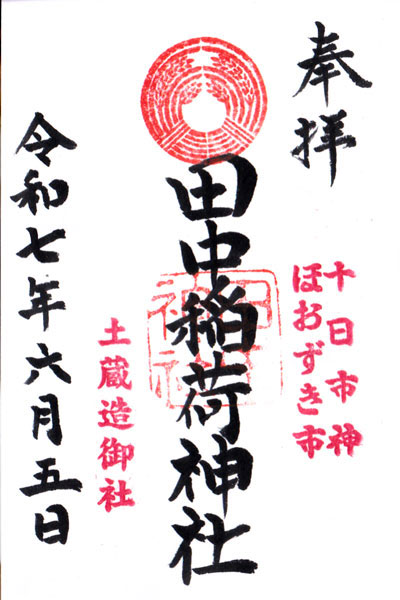 奉拝
十日市神
ほおずき市
田中稲荷神社
土蔵造御社
令和七年六月五日